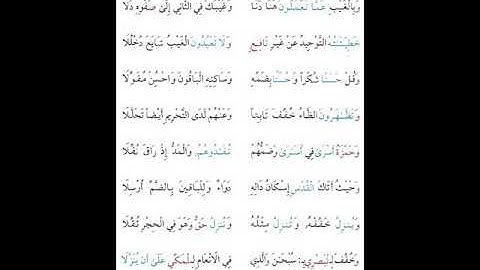 وَبِالْغَيْبِ عَمَّا تَعْمَلُونَ هُنَا دَنَا وَغَيْبُكَ فِي الثَّانِي إِلَىٰ صَفْوِهِ دَلَا
خَطِيئَتُهُ التَّوْحِيدُ عَنْ غَيْرِ نَافِعٍ وَلَا تَعْبُدُونَ الْغَيْبُ شَايَعَ دُخْلُلَا
وَقُلْ حَسَنًا شُكْرًا وَحُسْنًا بِضَمِّهِ وَسَاكِنِهِ الْبَاقُونَ وَاحْسِنْ مُقَوِّلَا
وَتَظَّاهَرُونَ الظَّاءُ خُفِّفَ ثَابِتًا وَعَنْهُمْ لَدَى التَّحْرِيمِ أَيْضًا تَحَلَّلَا
وَحَمْزَةُ أَسْرَىٰ فِي أُسَارَىٰ وَضَمُّهُمْ تُفَادُوهُمُ وَالْمَدُّ إِذْ رَاقَ نُفِّلَا
وَحَيْثُ أَتَاكَ الْقُدْسُ إِسْكَانُ دَالِهِ دَوَاءٌ وَلِلْبَاقِينَ بِالضَّمِّ أُرْسِلَا
وَيُنْزِلُ خَفِّفْهُ وَتُنْزِلُ مِثْلُهُ وَنُنْزِلُ حَقٌّ وَهْوَ فِي الْحِجْرِ ثُقِّلَا
وَخُفِّفَ لِلْبَصْرِي بِسُبْحَانَ وَالَّذِي فِي الْأَنْعَامِ لِلْمَكِّي عَلَىٰ أَنْ يُنَزِّلَا